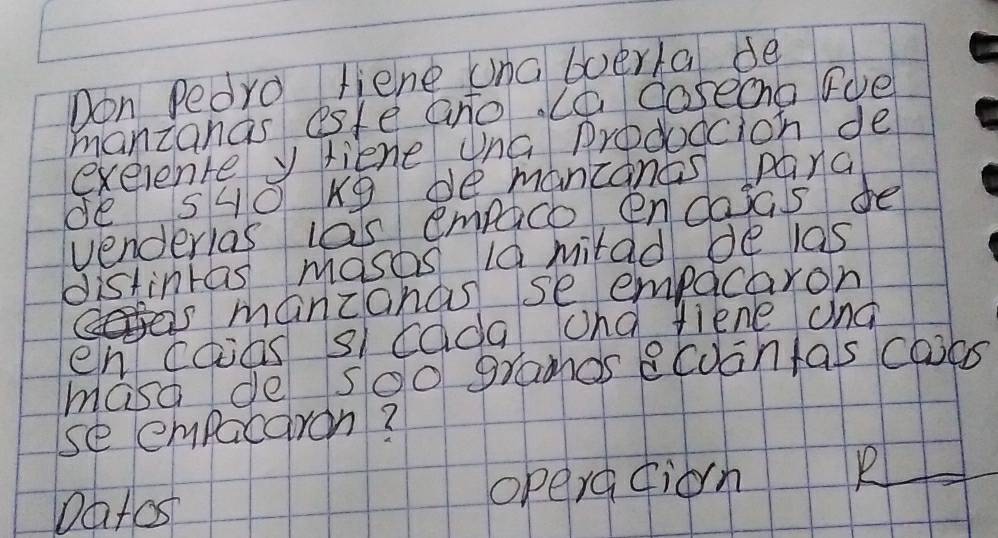 Don pedro tiene una boerta de
manzanas este ano. La cosecha fue
exelente y tiene una produccion de
de 540 kg de manzanas para
venderlas las empaco en cajas de
distintas masas la mitad de las
manzanas se empacaron
en cajas si cada una tiene una
masa de 500 gramos ¿cuantas cajas
se empacaron?
Datos operacion R